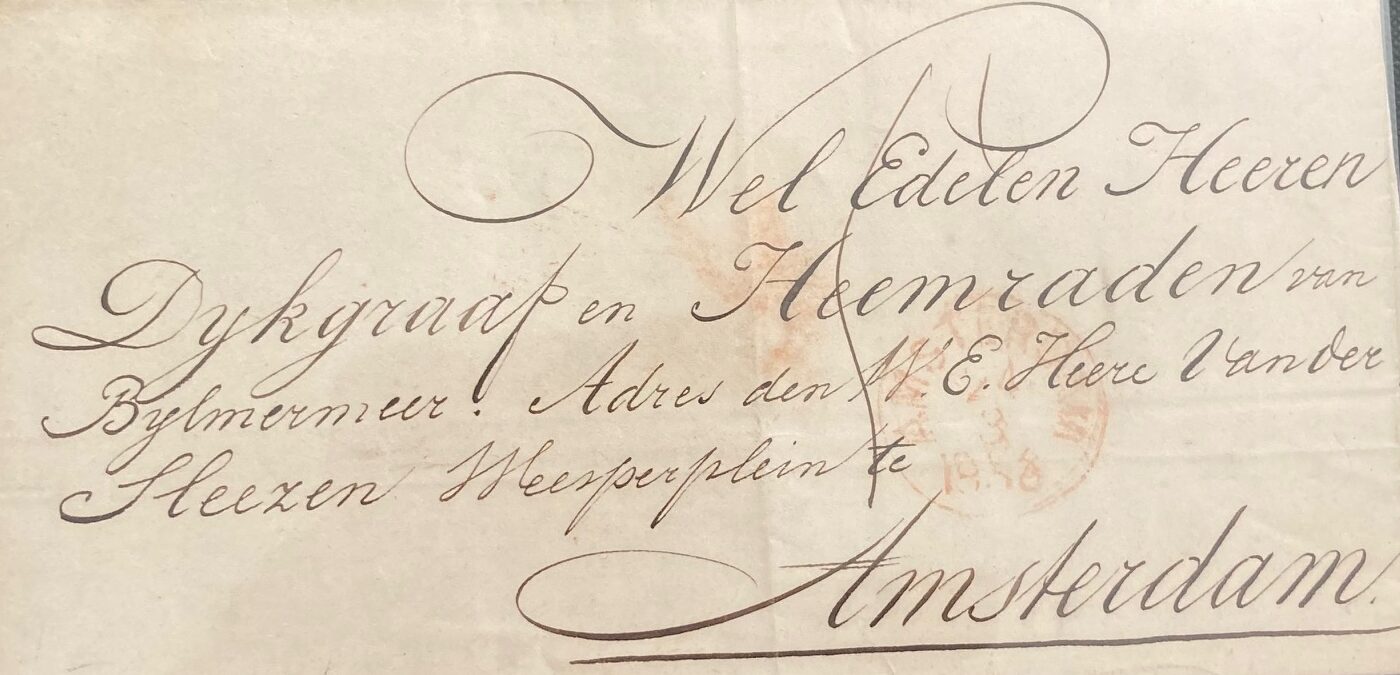 Wel Edelen Heeren
Dykgraaf en Heemraden van
Bylmermeer. Adres den W. E. Heere Van der
Sleezen Weesperplein te
Amsterdam.
AMSTERDAM
3
1858